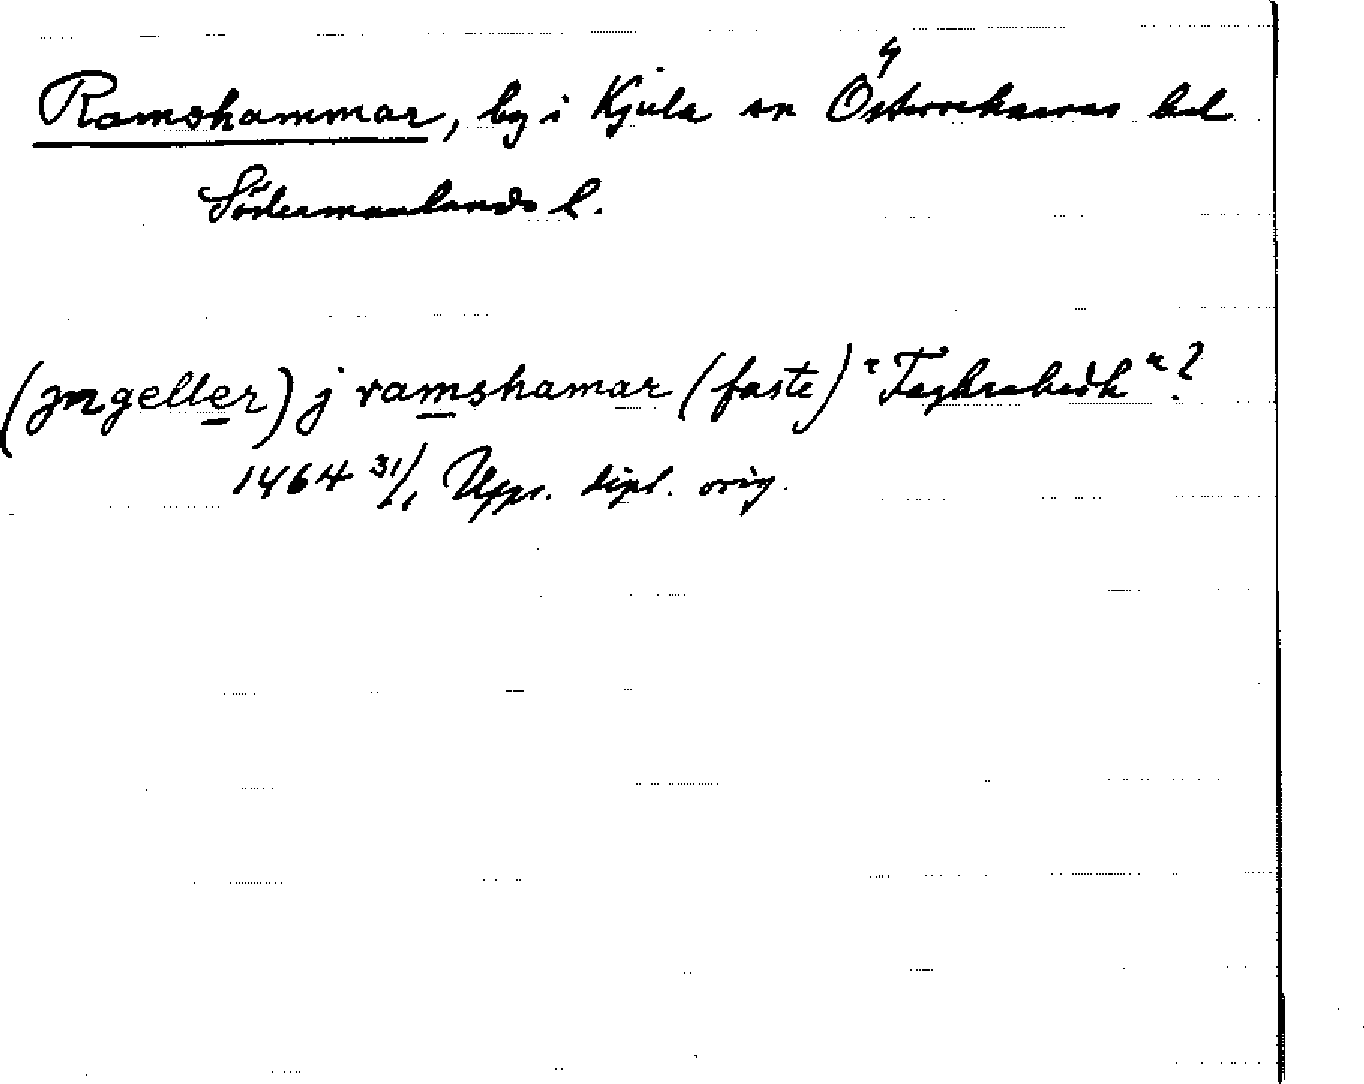 Ramshammar, by i Kjula sn Österrekarne hd
Södermanlands l.
(jngeller) j ramshamar (faste)
1464 31/1 Upps. dipl. orig.